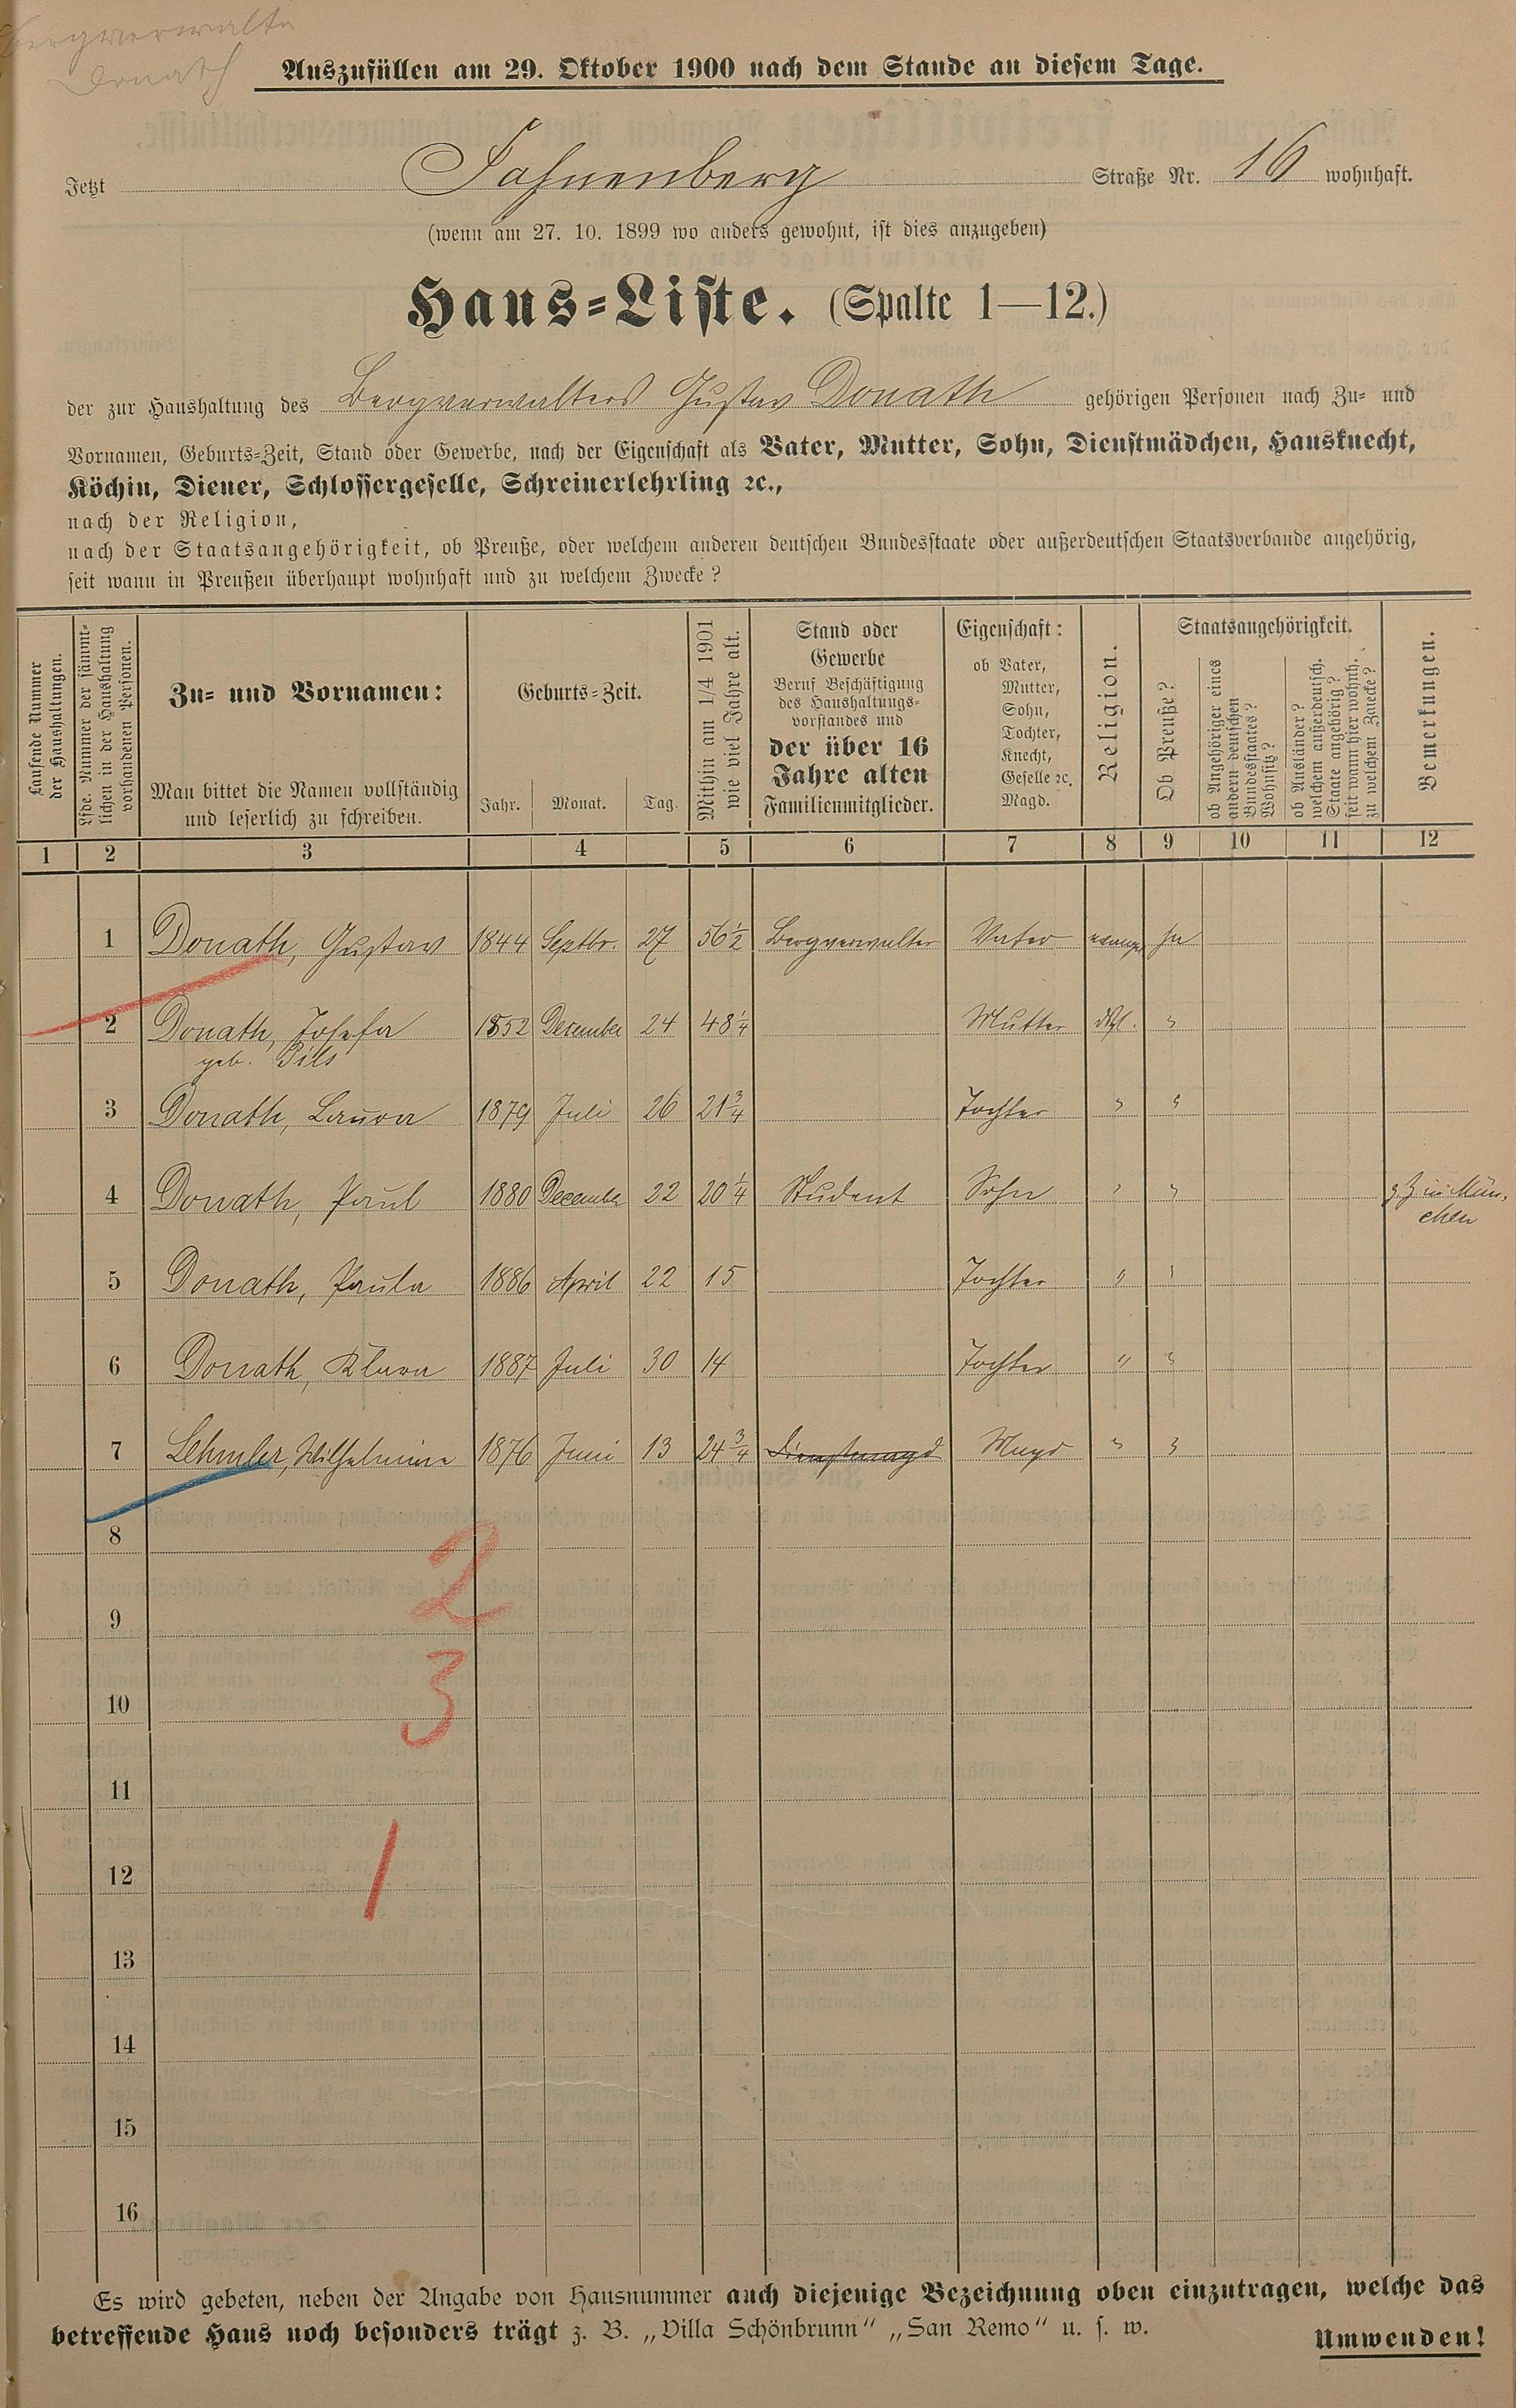 Bergverwalter
Donath
Auszufüllen am 29. Oktober 1900 nach dem Stande an diesem Tage.
Jetzt Fahnenberg Straße Nr. 16 wohnhaft.
(wenn am 27. 10. 1899 wo anders gewohnt, ist dies anzugeben)
Haus=Liste. (Spalte 1—12.)
der zur Haushaltung des Bergverwalters Gustav Donath gehörigen Personen nach Zu= und
Vornamen, Geburts=Zeit, Stand oder Gewerbe, nach der Eigenschaft als Vater, Mutter, Sohn, Dienstmädchen, Hausknecht,
Köchin, Diener, Schlossergeselle, Schreinerlehrling ꝛc.,
nach der Religion,
nach der Staatsangehörigkeit, ob Preuße, oder welchem anderen deutschen Bundesstaate oder außerdeutschen Staatsverbande angehörig,
seit wann in Preußen überhaupt wohnhaft und zu welchem Zwecke?
Laufende Nummer
der Haushaltungen.
Lfde. Nummer der sämmt-
lichen in der Haushaltung
vorhandenen Personen.
Zu= und Vornamen:
Man bittet die Namen vollständig
und leserlich zu schreiben.
Geburts=Zeit.
Jahr. Monat. Tag.
Mithin am 1/4 1901
wie viel Jahre alt.
Stand oder
Gewerbe
Beruf Beschäftigung
des Haushaltungs=
vorstandes und
der über 16
Jahre alten
Familienmitglieder.
Eigenschaft:
ob Vater,
Mutter,
Sohn,
Tochter,
Knecht,
Geselle ꝛc.
Magd.
Religion.
Staatsangehörigkeit.
Ob Preuße?
ob Angehöriger eines
andern deutschen
Bundesstaates?
Wohnsitz?
ob Ausländer?
welchem außerdeutsch.
Staate angehörig?
seit wann hier wohnh.
zu welchem Zwecke?
Bemerkungen.
1 2 3 4 5 6 7 8 9 10 11 12
1 Donath, Gustav 1844 Septbr. 27 56 1/2 Bergverwalter Vater evang. ja
2 Donath, Josefa 1852 Dezember 24 48 1/4 Mutter "
geb. Pils
3 Donath, Laura 1879 Juli 26 21 3/4 Tochter " "
4 Donath, Paul 1880 December 22 20 1/4 Student Sohn " " z Z in Mün-
chen
5 Donath, Paula 1886 April 22 15 Tochter " "
6 Donath, Klara 1887 Juli 30 14 Tochter " "
7 Lehmler, Wilhelmine 1876 Juni 13 24 3/4 Dienstmagd Magd " "
8
2
9
3
10
11
1
12
13
14
15
16
Es wird gebeten, neben der Angabe von Hausnummer auch diejenige Bezeichnung oben einzutragen, welche das
betreffende Haus noch besonders trägt z. B. „Villa Schönbrunn“ „San Remo“ u. s. w.
Umwenden!